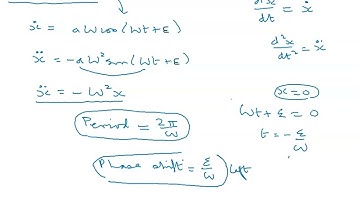 ẋ = aω cos(ωt+ε)
ẍ = -aω² sin(ωt+ε)
ẍ = -ω²x
Period = 2π/ω
Phase shift = ε/ω left
dx/dt = ẋ
d²x/dt² = ẍ
x=0
ωt + ε = 0
t = -ε/ω